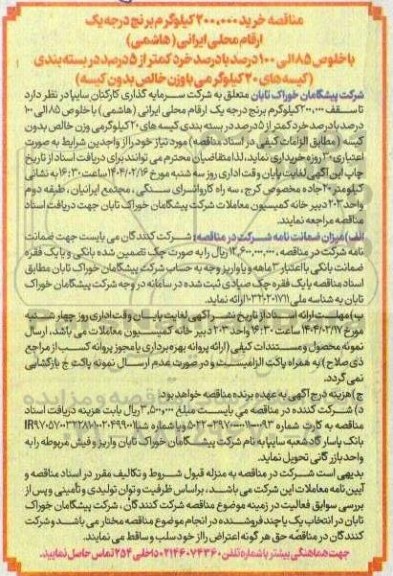 مناقصه خرید ۲۰۰،۰۰۰ کیلوگرم برنج درجه یک
ارقام محلی ایرانی (هاشمی)
با خلوص ۸۵ الی ۱۰۰ درصد با درصد خرد کمتر از ۵ درصد در بسته بندی
(کیسه های ۲۰ کیلوگرمی با وزن خالص بدون کیسه)
شرکت پیشگامان خوراک تابان متعلق به شرکت سرمایه گذاری کارکنان سایپا در نظر دارد
تا سقف ۲۰۰،۰۰۰ کیلوگرم برنج درجه یک ارقام محلی ایرانی (هاشمی) با خلوص ۸۵ الی ۱۰۰
درصد با درصد خرد کمتر از ۵ درصد در بسته بندی کیسه های ۲۰ کیلوگرمی وزن خالص بدون
کیسه (مطابق الزامات کیفی در اسناد مناقصه) مورد نیاز خود را از واجدین شرایط به صورت
اعتباری ۳۰ روزه خریداری نماید، لذا متقاضیان محترم می توانند برای دریافت اسناد از تاریخ
چاپ این آگهی لغایت پایان وقت اداری روز سه شنبه مورخ ۱۴۰۴/۰۲/۱۶ ساعت ۱۶:۳۰ به نشانی
کیلومتر ۲۰ جاده مخصوص کرج، سه راه کاروانسرای سنگی، مجتمع ایرانیان، طبقه دوم
واحد ۲۰۳ دبیرخانه کمیسیون معاملات شرکت پیشگامان خوراک تابان جهت دریافت اسناد
مناقصه مراجعه نمایند.
الف) میزان ضمانت نامه شرکت در مناقصه: شرکت کنندگان می بایست جهت ضمانت
نامه شرکت در مناقصه، ۱۲,۶۰۰,۰۰۰,۰۰۰ ریال را به صورت چک تضمین شده بانکی و یا یک فقره
ضمانت بانکی با اعتبار ۳ ماهه و یا واریز وجه به حساب شرکت پیشگامان خوراک تابان مطابق
اسناد مناقصه یا یک فقره چک صیادی ثبت شده در سامانه در وجه شرکت پیشگامان خوراک
تابان به شناسه ملی ۱۰۳۲۰۲۰۱۷۱۱ ارائه نماید.
ب) مهلت ارائه اسناد از تاریخ نشر آگهی لغایت پایان وقت اداری روز چهارشنبه
مورخ ۱۴۰۴/۰۲/۱۷ ساعت ۱۶:۳۰ واحد ۲۰۳ دبیرخانه کمیسیون معاملات می باشد، ارسال
نمونه محصول و مستندات کیفی (ارائه پروانه بهره برداری یا مجوز پروانه کسب از مراجع
ذی صلاح) به همراه پاکت الزامیست و در صورت عدم ارسال نمونه پاکت ج بازگشایی
نمی گردد.
ج) هزینه درج آگهی به عهده برنده مناقصه خواهد بود.
د) شرکت کننده در مناقصه می بایست مبلغ ۳,۵۰۰,۰۰۰ ریال بابت هزینه دریافت اسناد
مناقصه به کارت شماره
بانک پاسارگاد شعبه سایپا به نام شرکت پیشگامان خوراک تابان واریز و فیش مربوطه را به
واحد بازرگانی تحویل نماید.
بدیهی است شرکت در مناقصه به منزله قبول شروط و تکالیف مقرر در اسناد مناقصه و
آیین نامه معاملات این شرکت می باشد، براساس ظرفیت و توان تولیدی و تأمینی و پس از
بررسی سوابق فعالیت در زمینه موضوع مناقصه شرکت کنندگان، شرکت پیشگامان خوراک
تابان در انتخاب یک یا چند فروشنده در انجام موضوع مناقصه مختار می باشد و شرکت
کنندگان در مناقصه حق هر گونه اعتراض را از خود سلب و ساقط می نمایند.
جهت هماهنگی بیشتر با شماره تلفن ۰۲۱۴۶۰۷۴۳۶۰ داخلی ۲۵۴ تماس حاصل نمایید.